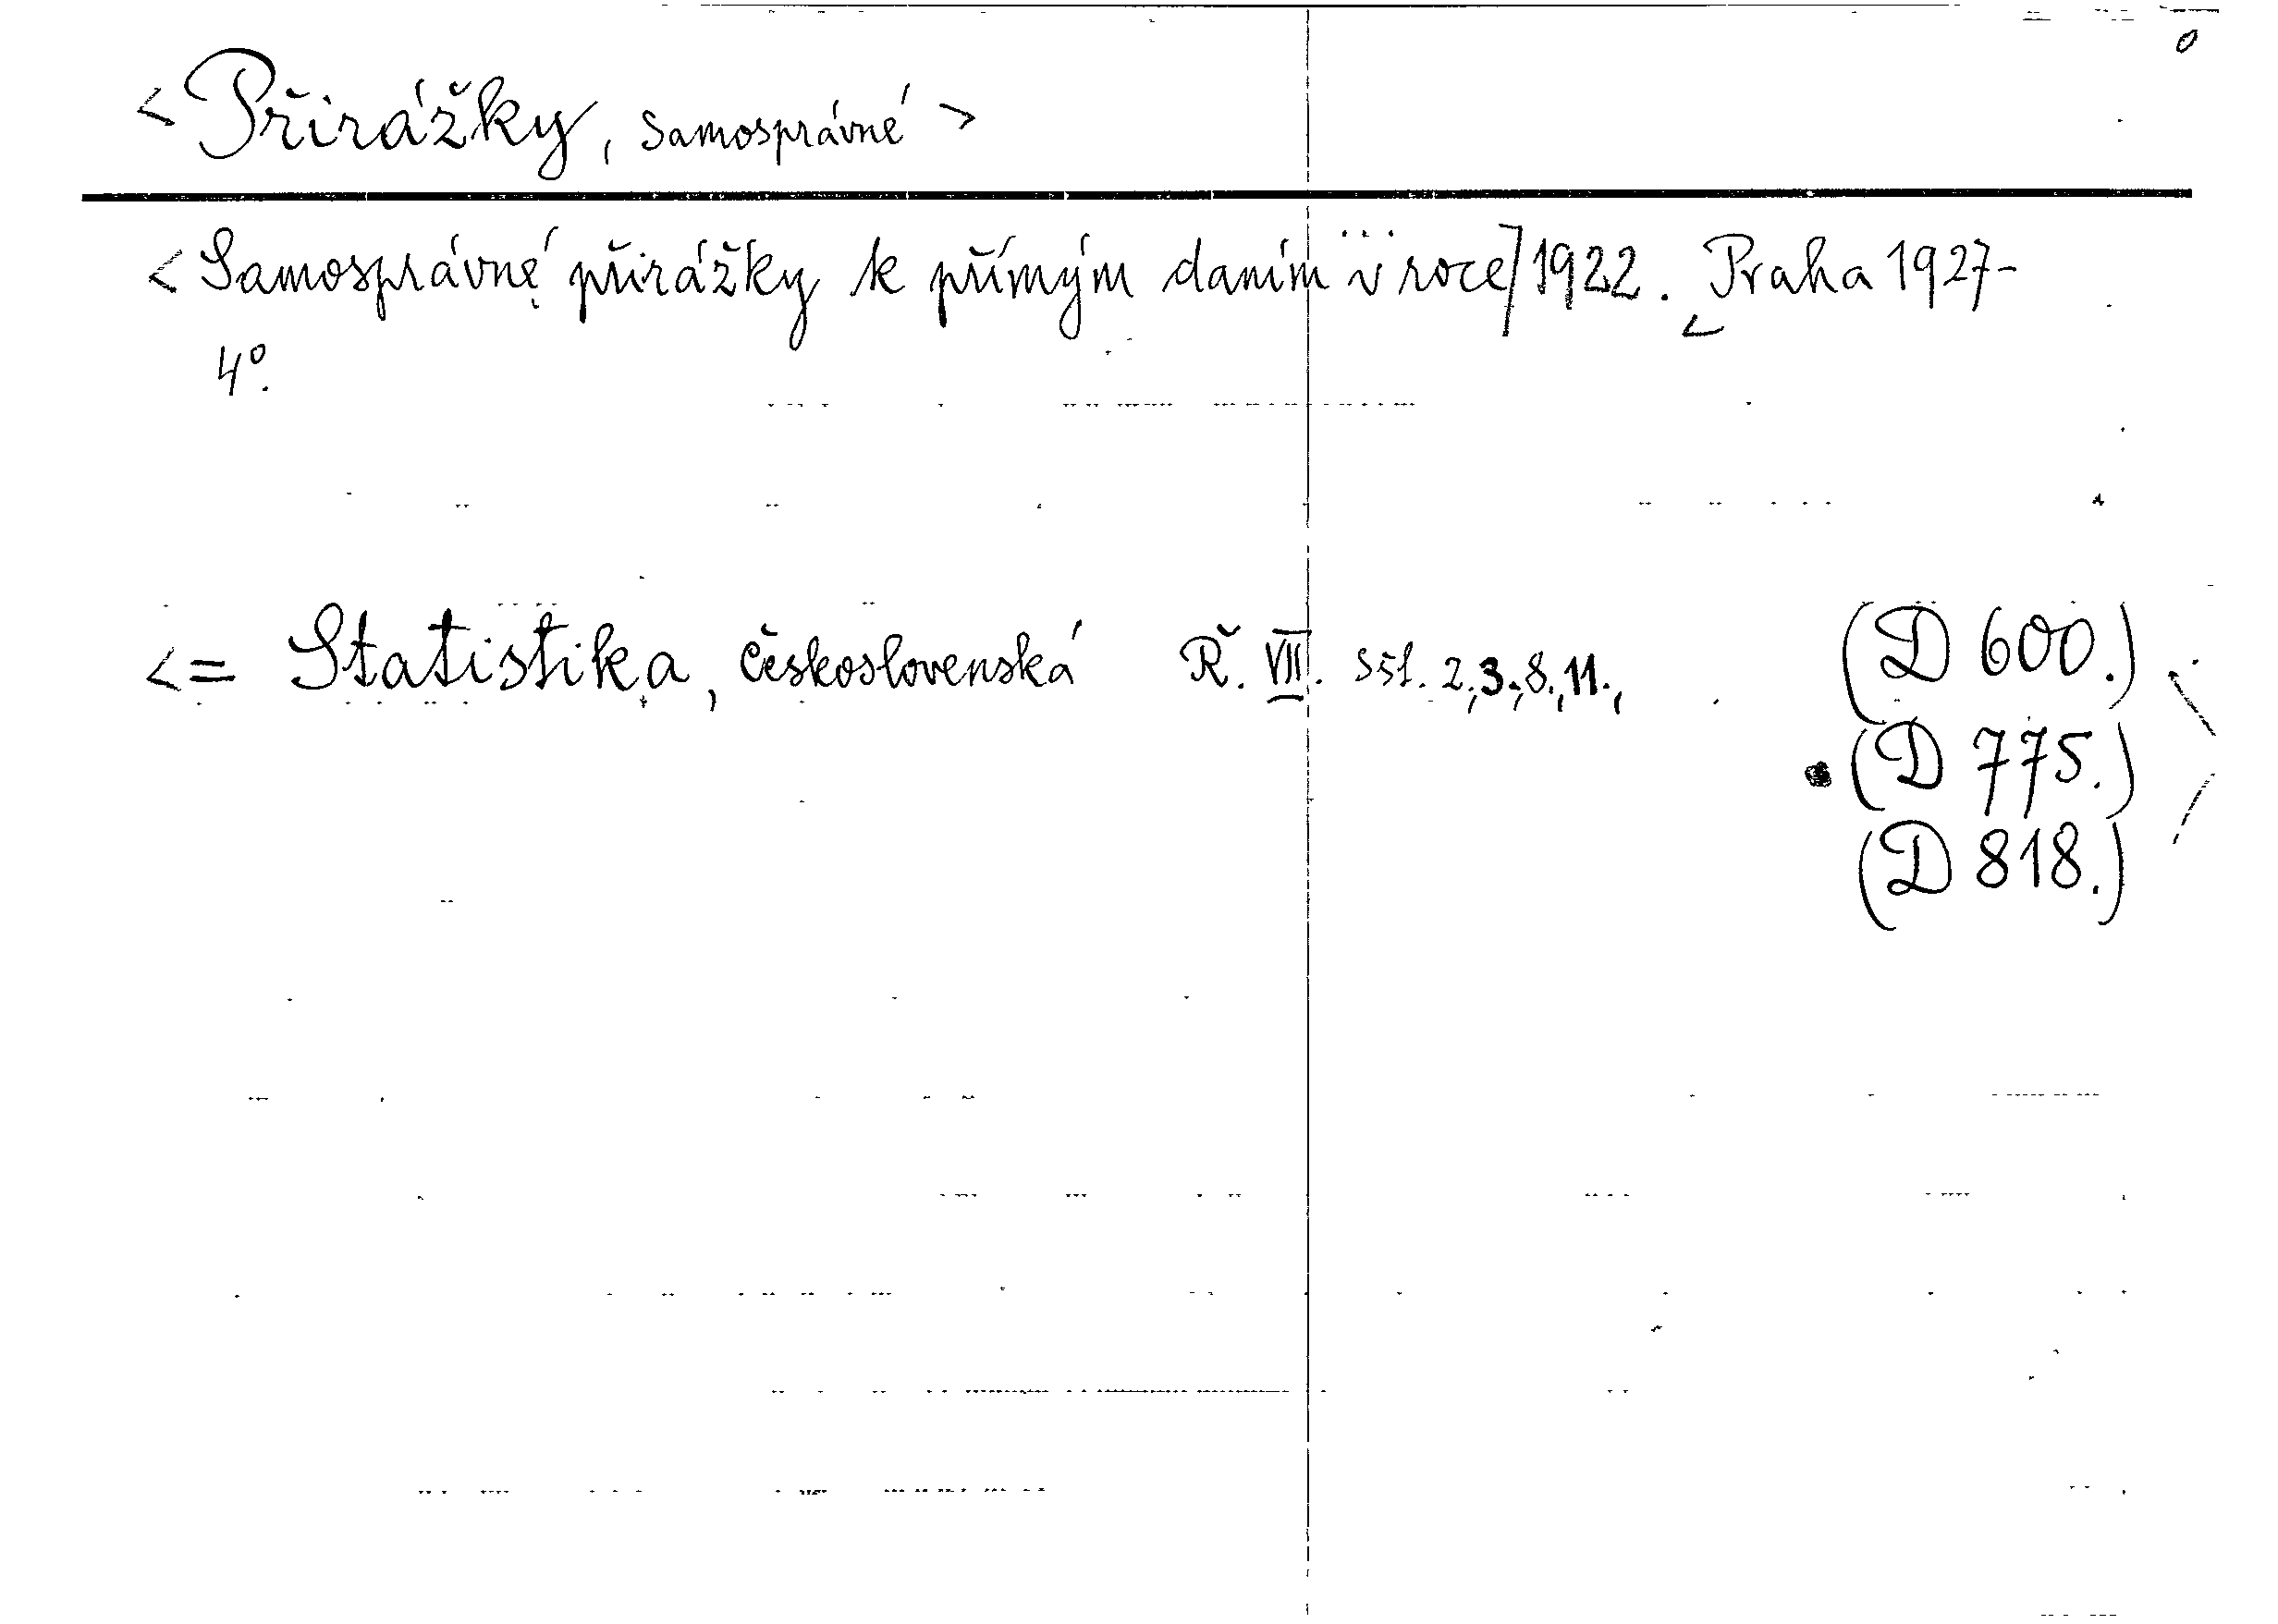 <Přirážky, samosprávné>
<Samosprávné přirážky k přímým daním v roce] 1922. Praha 1927-
4°.
<= Statistika, československá Ř. VII. sšt. 2.,3.,8.,11., (D 600.)
(D 775.)
(D 818.)